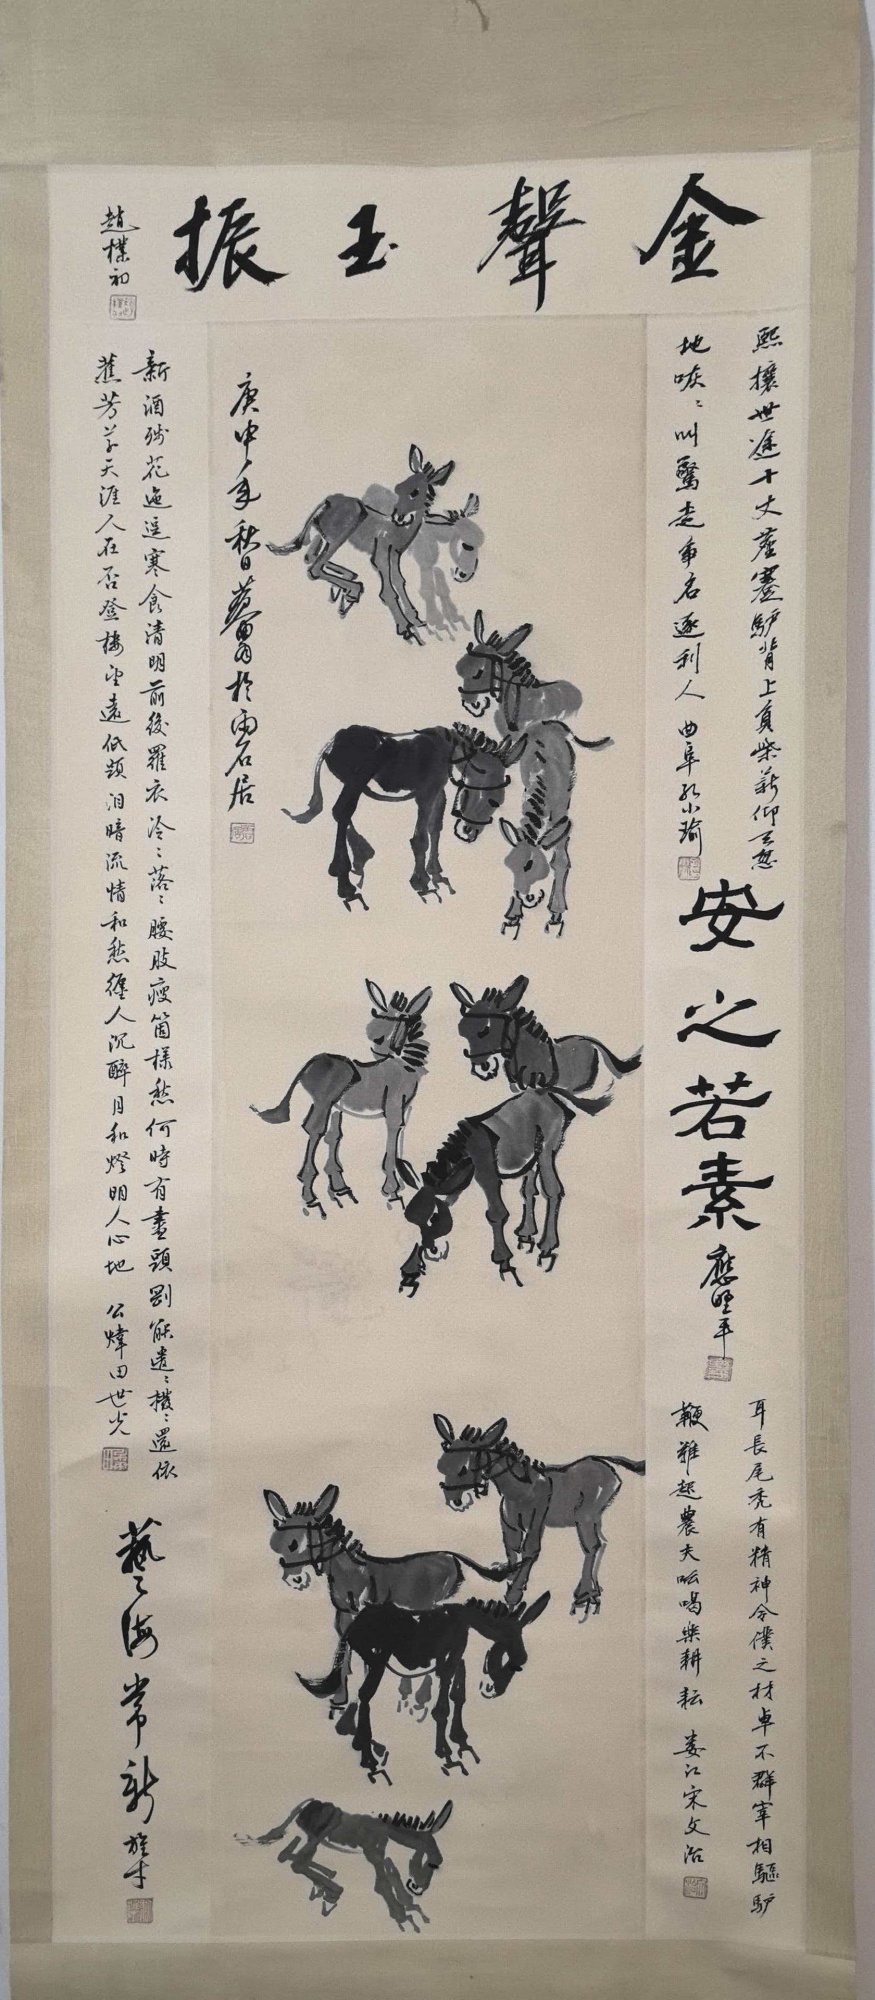 金聲玉振
趙樸初
熙攘世途十丈塵蹇驢背上負柴薪仰天愁
地咴〻叫驚走争名逐利人 曲阜孔小瑜
安之若素
應野平
耳長尾秃有精神令僕之材卓不群宰相驅驴
鞭難起農夫吆喝樂耕耘 婁江宋文治
庚申年秋日黄胄於雨石居
新酒殘花迤逗寒食清明前後羅衣冷〻落〻腰肢瘦箇樣愁何時有盡頭剛能遣〻撥〻還依
舊芳草天涯人在否登樓望遠低頭泪暗流情和愁纏人沉醉月和燈明人心地 公煒田世光
藝海常新
雄才